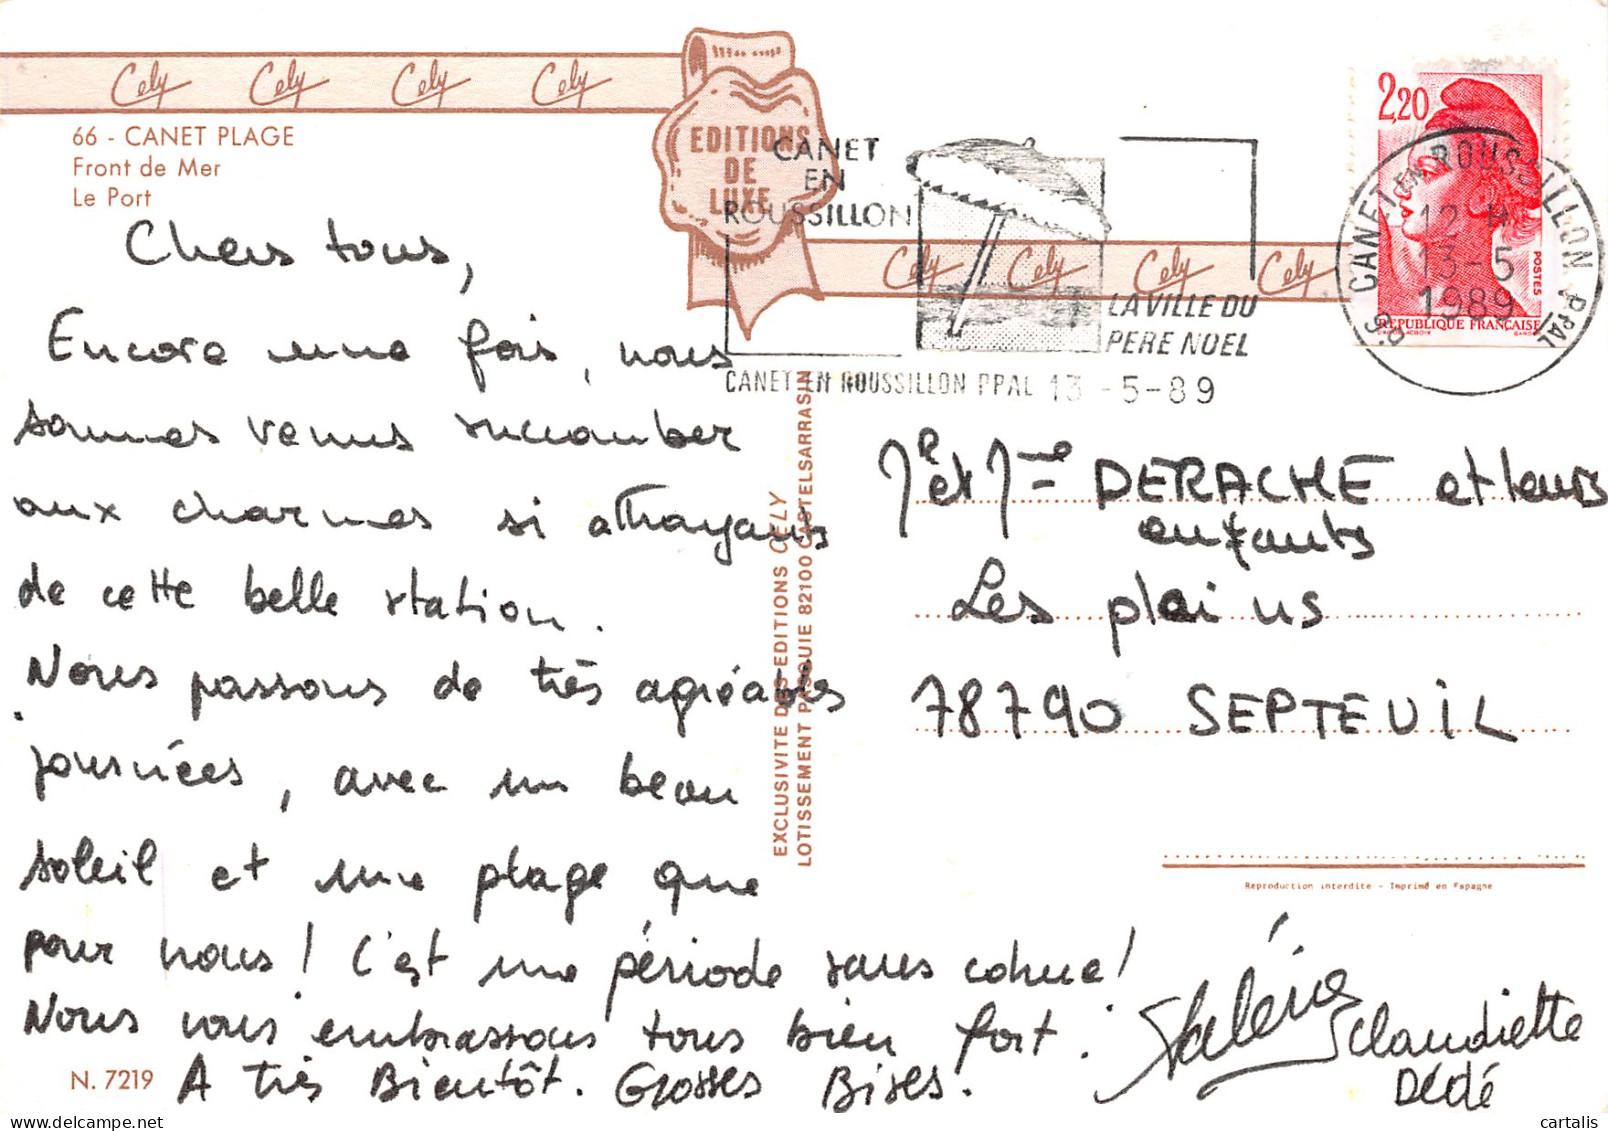 Cely Cely Cely Cely
66 - CANET PLAGE
Front de Mer
Le Port
EDITIONS
DE
LUXE
CANET
EN
ROUSSILLON
Cely Cely Cely Cely
LA VILLE DU
PERE NOEL
CANET EN ROUSSILLON PPAL 13 -5-89
2,20
POSTES
REPUBLIQUE FRANÇAISE
66 CANET EN ROUSSILLON PPAL
12 H
13-5
1989
Chers tous,
Encore une fois, nous
sommes venus succomber
aux charmes si attrayants
de cette belle station.
Nous passons de très agréables
journées, avec un beau
soleil et une plage que
pour nous! C'est une période sans cohue!
Nous vous embrassons tous bien fort.
A très Bientôt. Grosses Bises.
Valérie
Claudiette
Dédé
EXCLUSIVITE DES EDITIONS CELY
LOTISSEMENT PASQUIE 82100 CASTELSARRASIN
Mr et Mme DERACHE et leurs
enfants
Les plains
78790 SEPTEUIL
Reproduction interdite - Imprimé en Espagne
N. 7219
cartalis